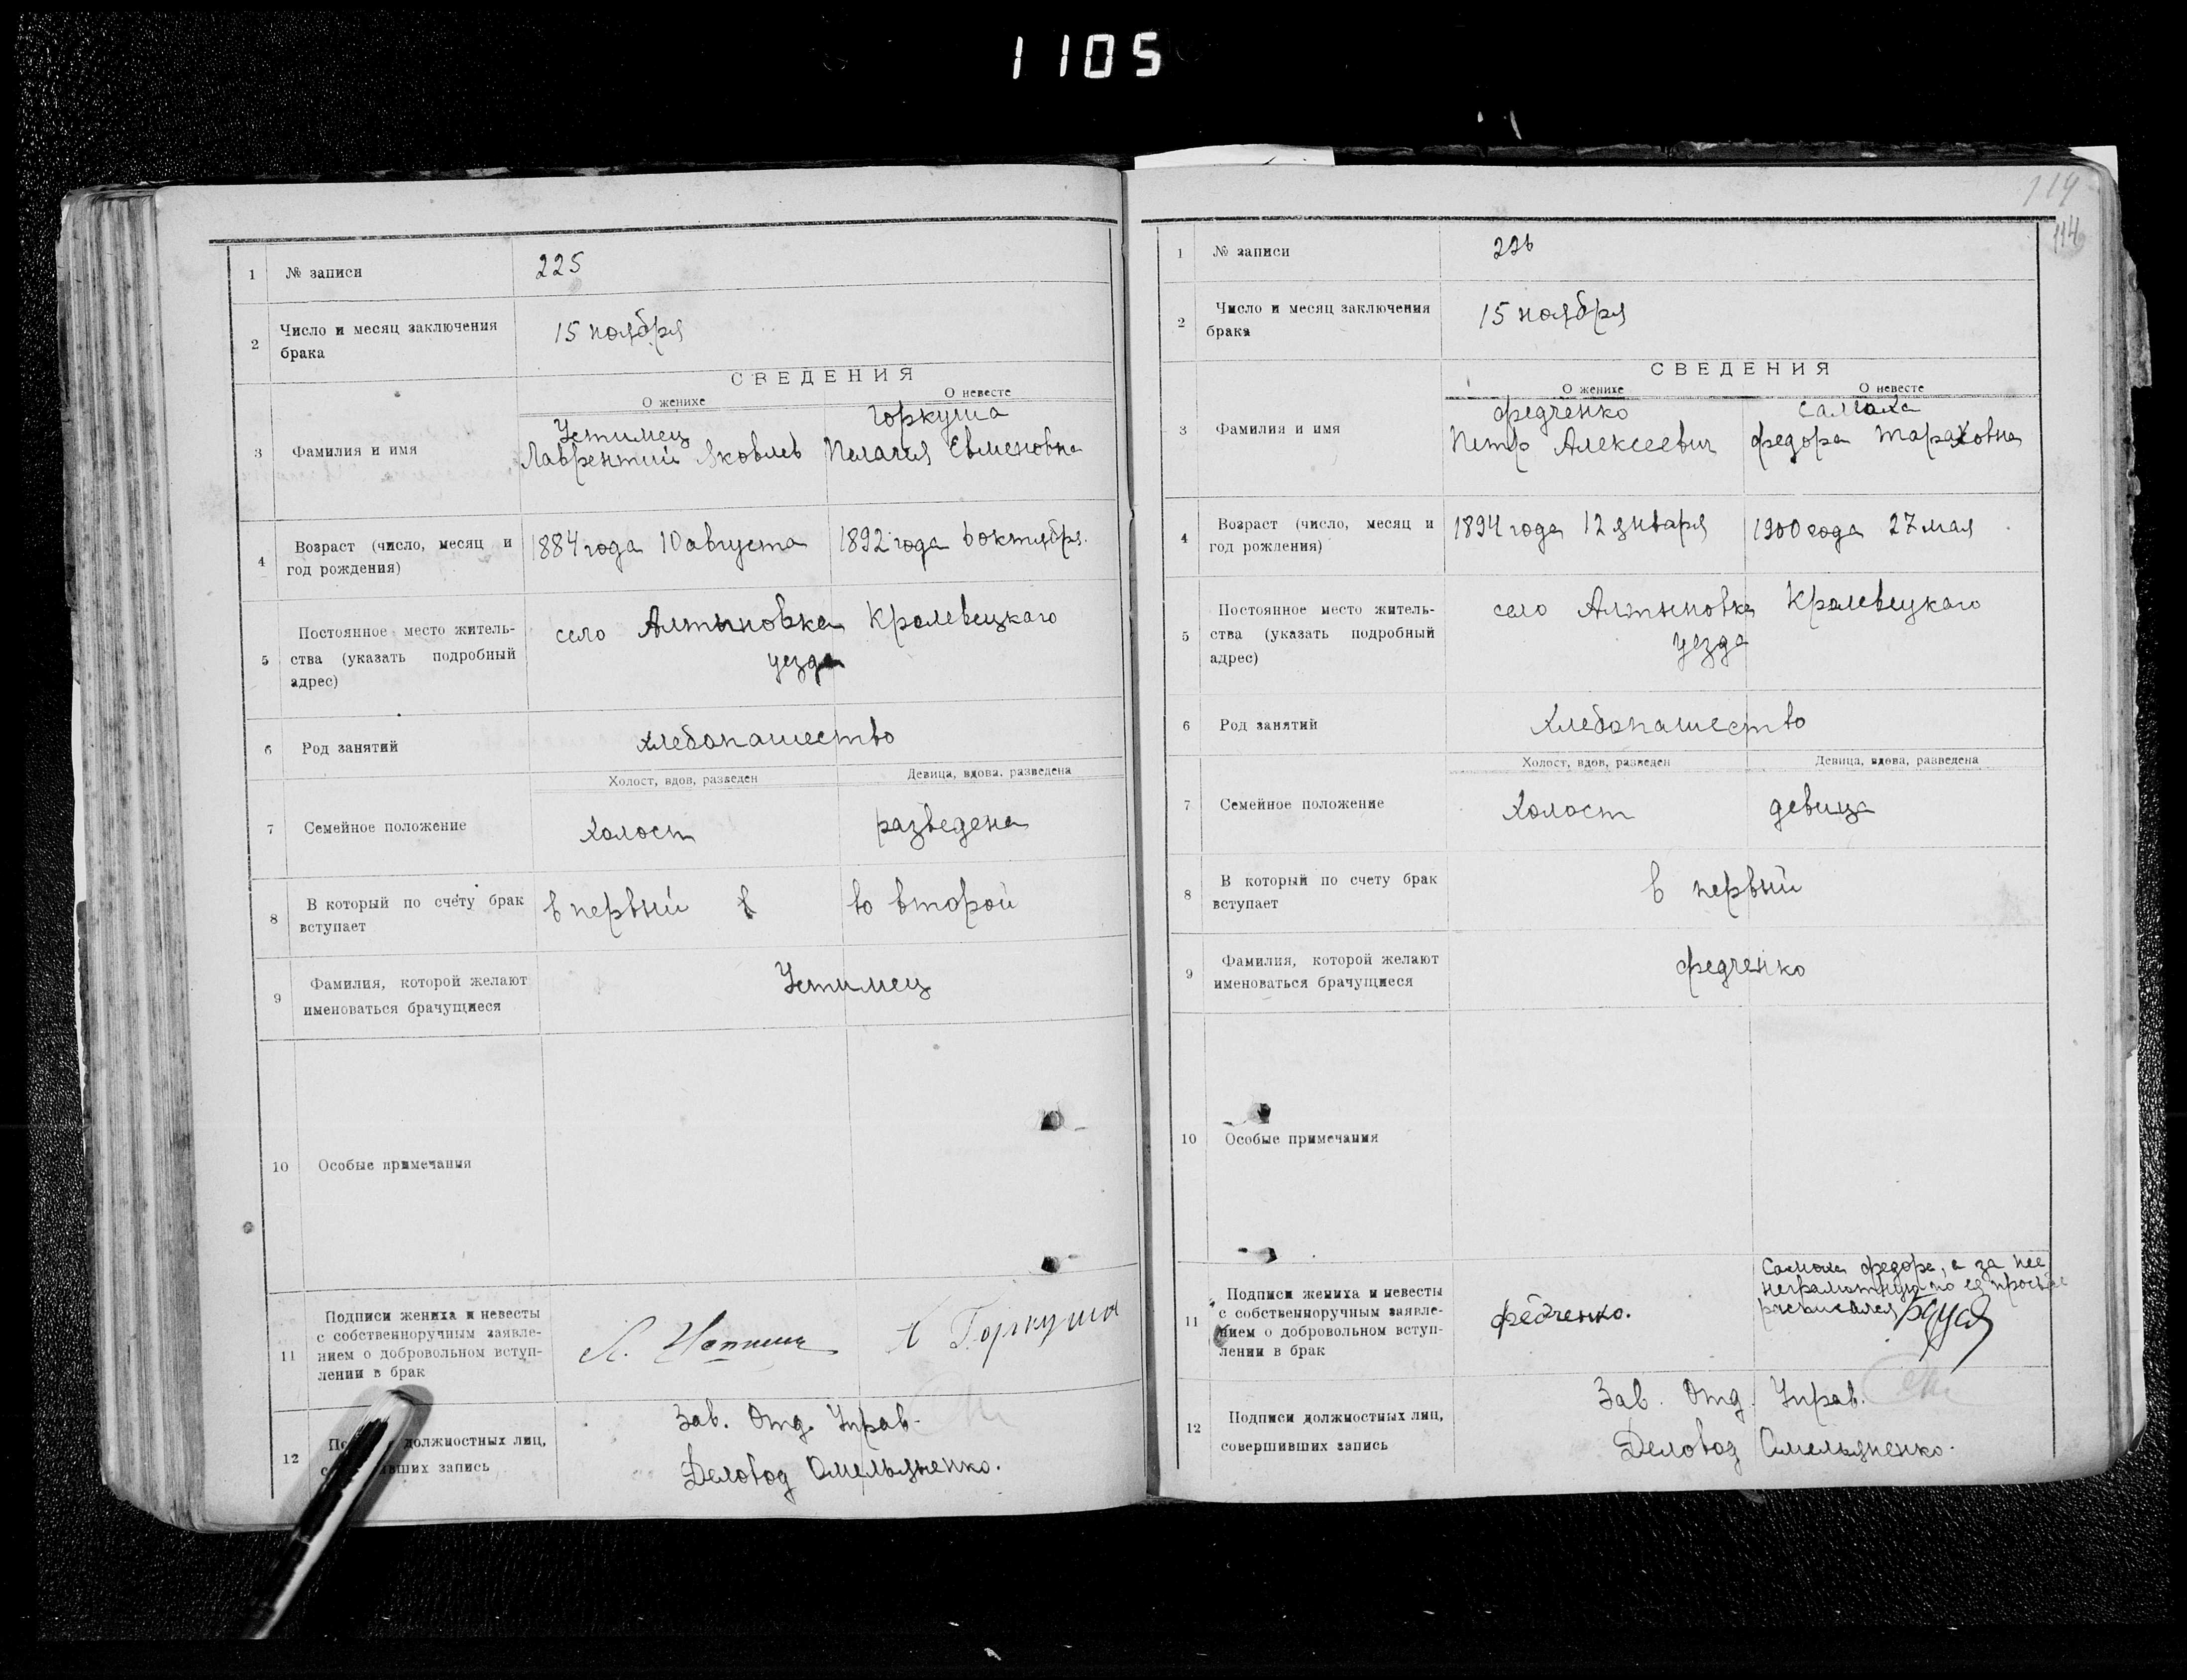 1105
1 № записи 225
2 Число и месяц заключения
брака
15 ноября
СВЕДЕНИЯ
О женихе О невесте
3 Фамилия и имя
Устимец Горкуша
Лаврентий Яковлев Пелагия Евменовна
4 Возраст (число, месяц и
год рождения)
1884 года 10 августа 1892 года 6 октября.
5 Постоянное место житель-
ства (указать подробный
адрес)
село Алтыновка Кролевецкаго
уезда
6 Род занятий хлебопашество
Холост, вдов, разведен Девица, вдова, разведена
7 Семейное положение холост разведена
8 В который по счету брак
вступает
в первый в во второй
9 Фамилия, которой желают
именоваться брачущиеся
Устимец
10 Особые примечания
11 Подписи жениха и невесты
с собственноручным заявле-
нием о добровольном вступ-
лении в брак
Л. Горкуша
12 должностных лиц,
запись
Зав. Отд. Управ.
Деловод Омельяненко.
114
114
1 № записи 226
2 Число и месяц заключения
брака
15 ноября
СВЕДЕНИЯ
О женихе О невесте
3 Фамилия и имя
Федченко Самоха
Петр Алексеевич Федора Тараховна
4 Возраст (число, месяц и
год рождения)
1894 года 12 января 1900 года 27 мая
5 Постоянное место житель-
ства (указать подробный
адрес)
село Алтыновка Кролевецкаго
уезда
6 Род занятий хлебопашество
Холост, вдов, разведен Девица, вдова, разведена
7 Семейное положение холост девица
8 В который по счету брак
вступает
в первый
9 Фамилия, которой желают
именоваться брачущиеся
Федченко
10 Особые примечания
11 Подписи жениха и невесты
с собственноручным заявле-
нием о добровольном вступ-
лении в брак
Федченко.
Самоха Федора, а за нее
неграмотную по ея просьбе
расписался
12 Подписи должностных лиц,
совершивших запись
Зав. Отд. Управ.
Деловод Омельяненко.